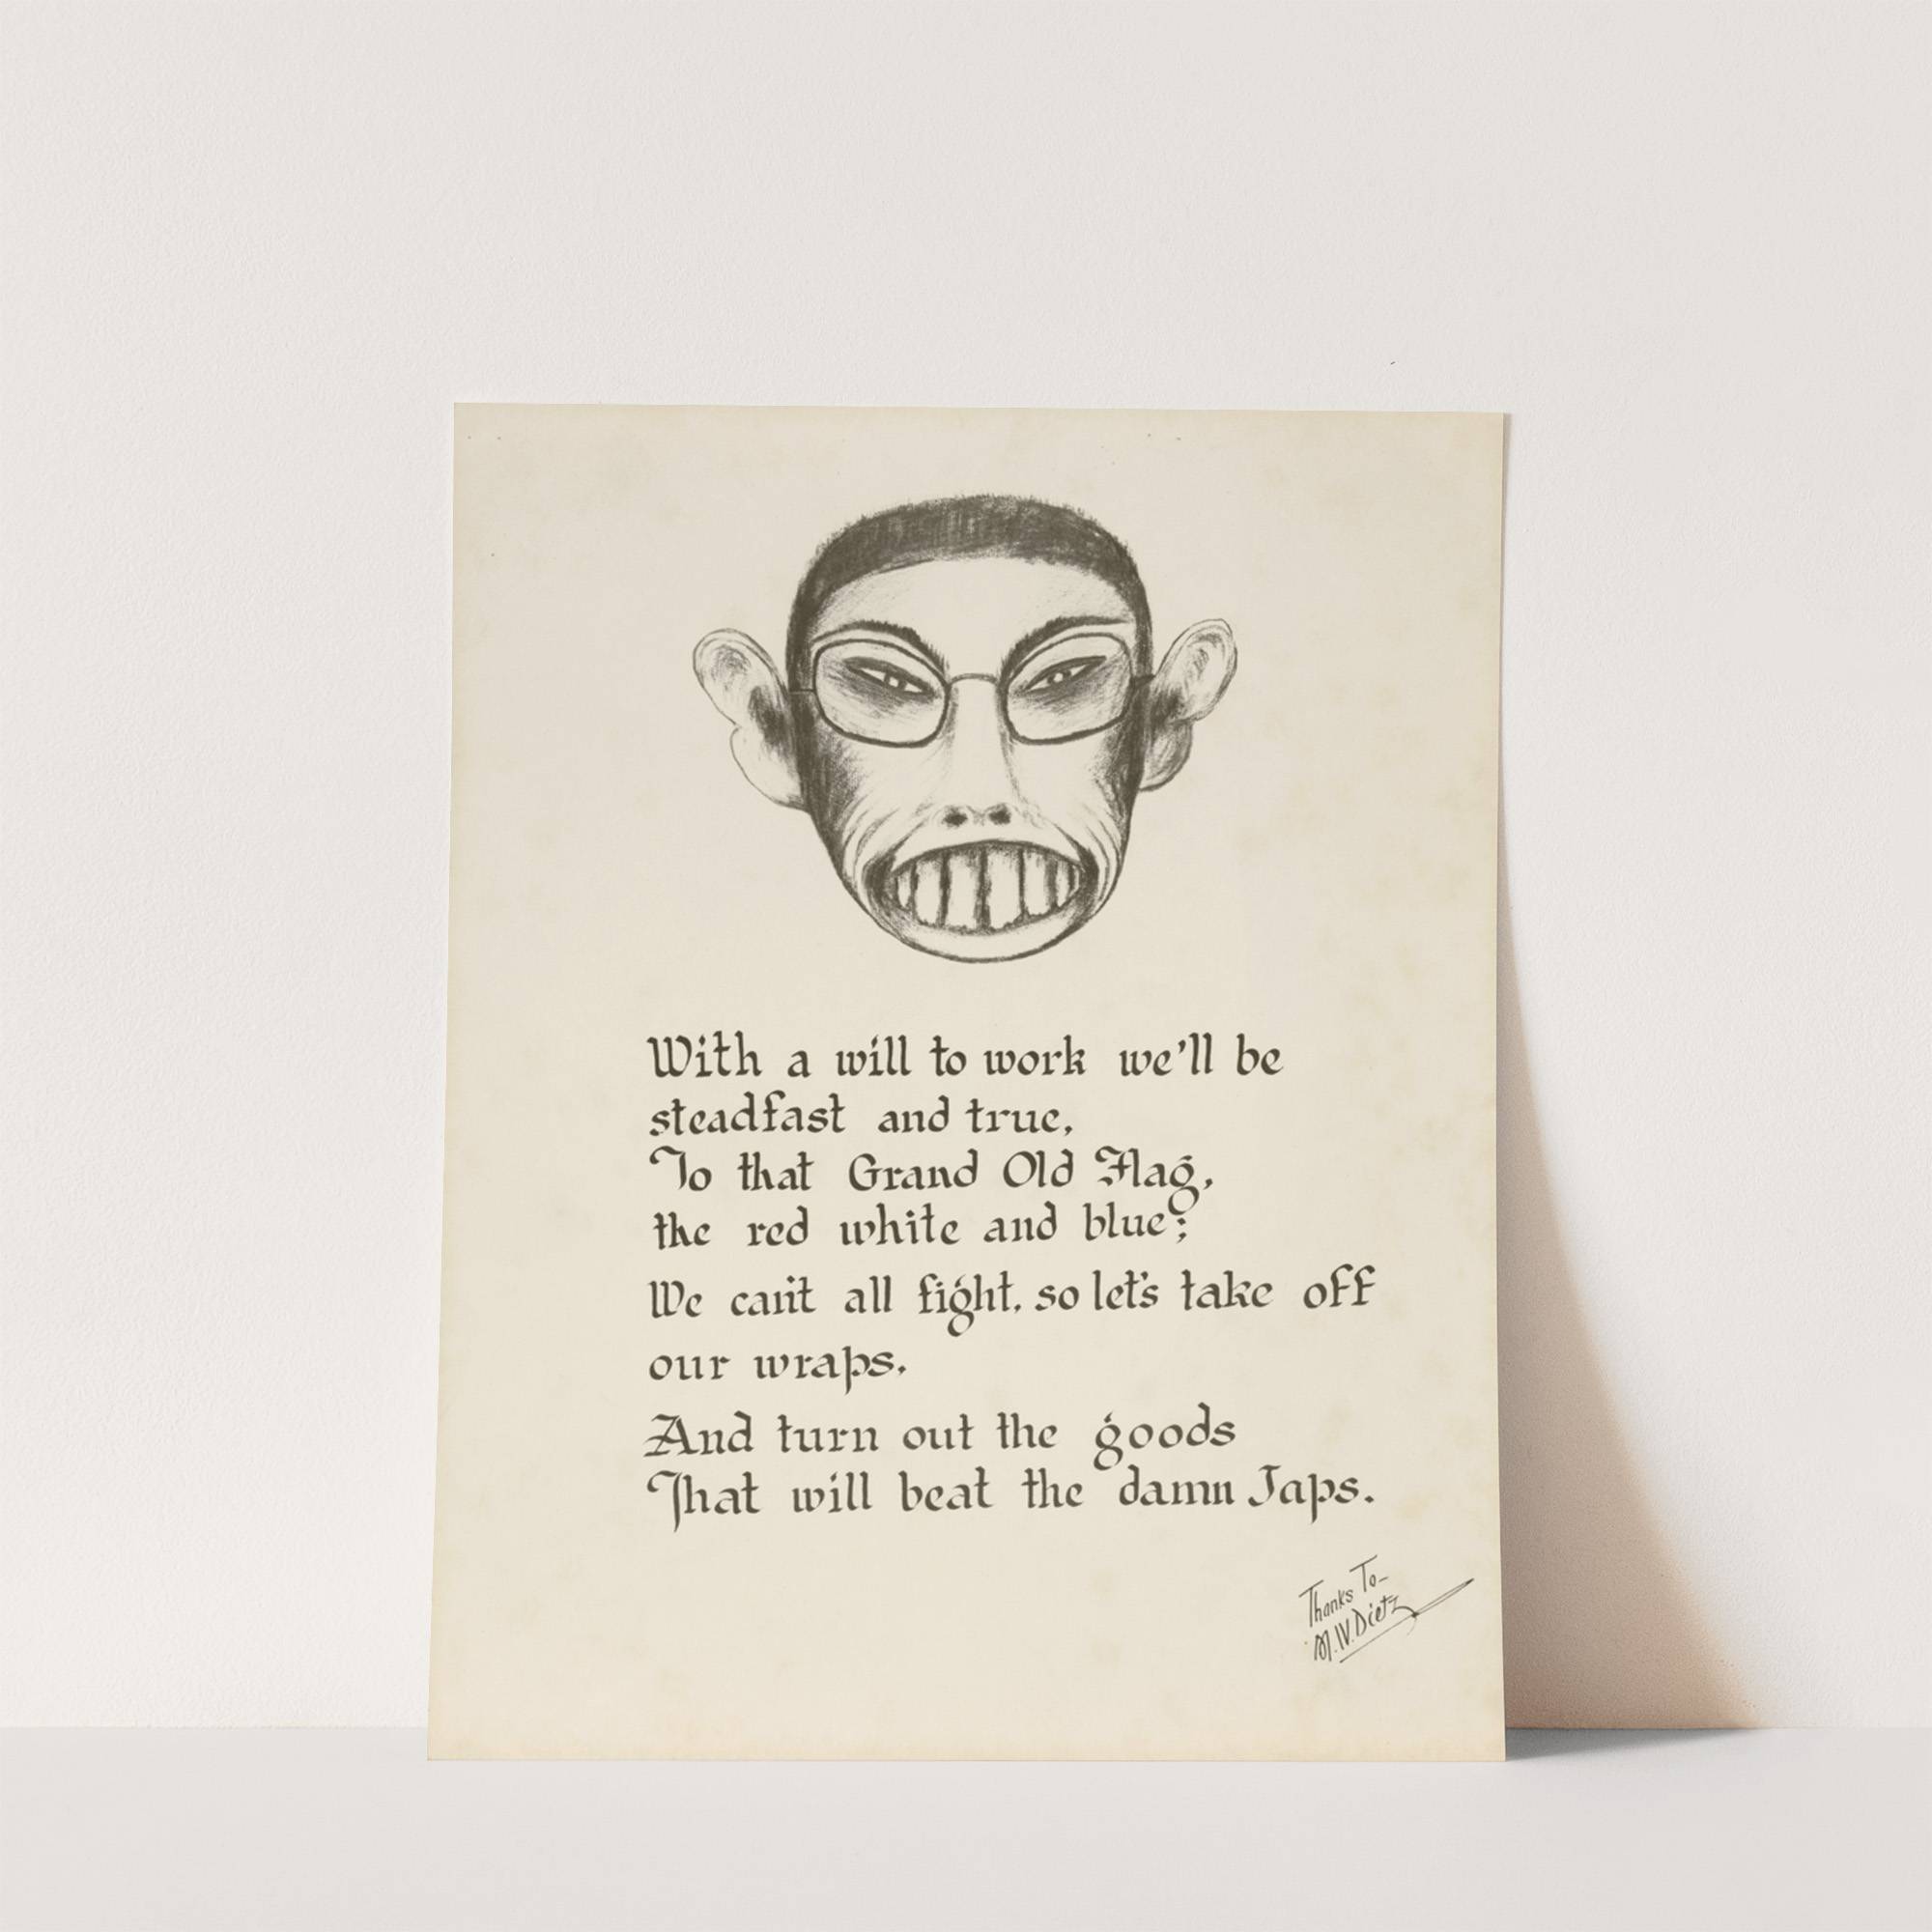 With a will to work we'll be
steadfast and true,
To that Grand Old Flag,
the red white and blue;
We can't all fight, so let's take off
our wraps,
And turn out the goods
That will beat the damn Japs.
Thanks To-
M.W.Dietz